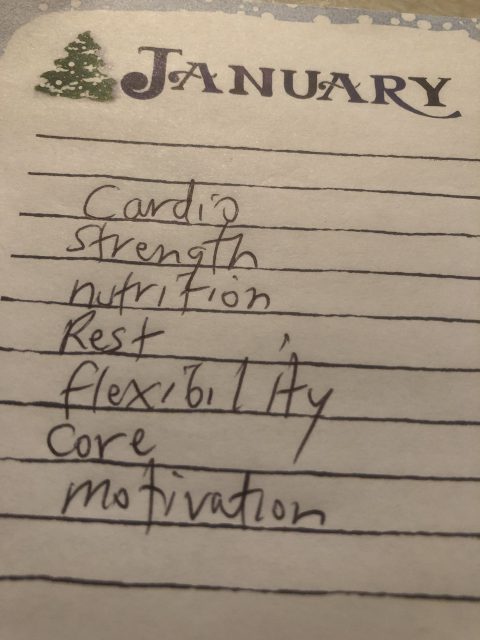 JANUARY
Cardio
Strength
nutrition
Rest
flexibility
Core
motivation